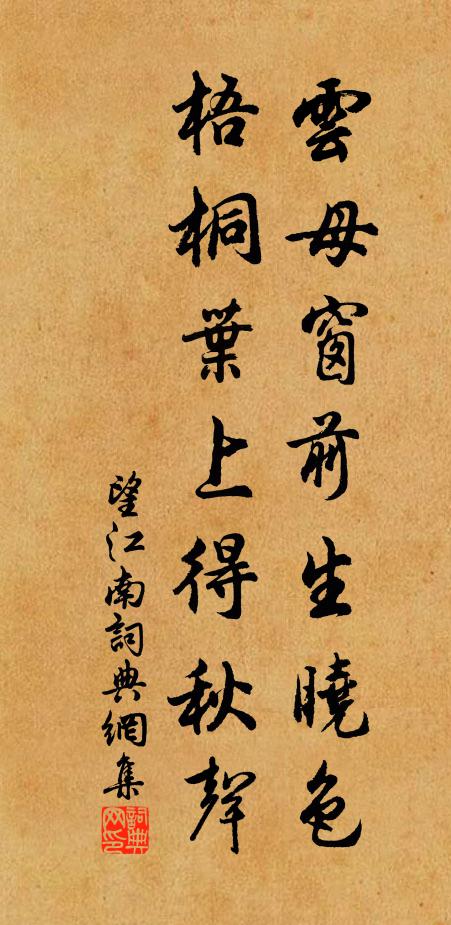 雲母窗前生曉色
梧桐葉上得秋聲
望江南詞典網集
詞典网印